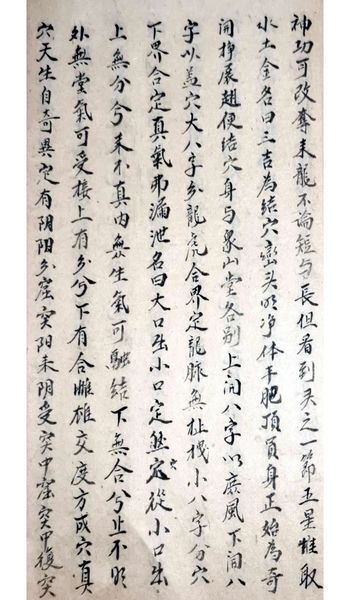 神功可改奪来龍不論短与長但看到头之一節五星惟取
水土金名曰三吉為結穴巒头明净体丰肥頂員身正始為奇
開挣展翅便結穴身与象山堂各别上開八字以風下開八
字以盖穴大八字分龍虎合界定龍脉無杜小八字分穴
下界合定真氣弗漏泄名曰大口出小口定然穴從小口出
上無分兮来不真内無生氣可融結下無合兮止不明
外無堂氣可受接上有分兮下有合雌雄交度方成穴真
穴天生自奇異定有阴阳分窟突阳来阴受突中窟突中復突